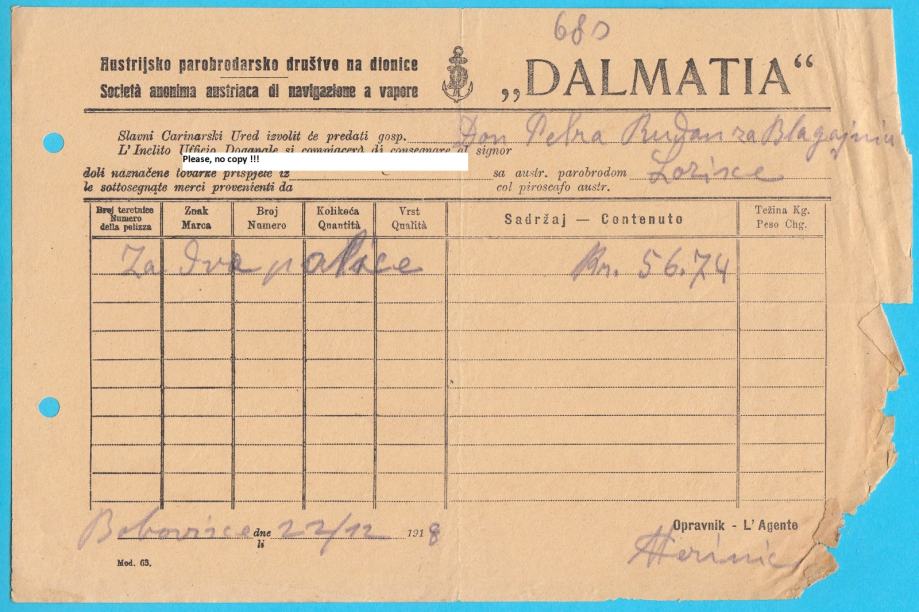 680
Austrijsko parobrodarsko društvo na dionice
Società anonima austriaca di navigazione a vapore
„DALMATIA“
Slavni Carinarski Ured izvolit će predati gosp. Don Petra Rudan za Blagajnu
L' Inclito Ufficio Doganale si compiacerà di consegnare al signor
Please, no copy !!!
doli naznačene tovarke prispjete iz
sa austr. parobrodom Lozisce
le sottosegnate merci provenienti da
col piroscafo austr.
Broj teretnice
Numero
della polizza
Znak
Marca
Broj
Numero
Kolikoća
Quantità
Vrst
Qualità
Sadržaj — Contenuto
Težina Kg.
Peso Chg.
Za dva Kr. 56.74
Bobovisce dne 22/12 1918
li
Opravnik - L' Agente
Mod. 63.